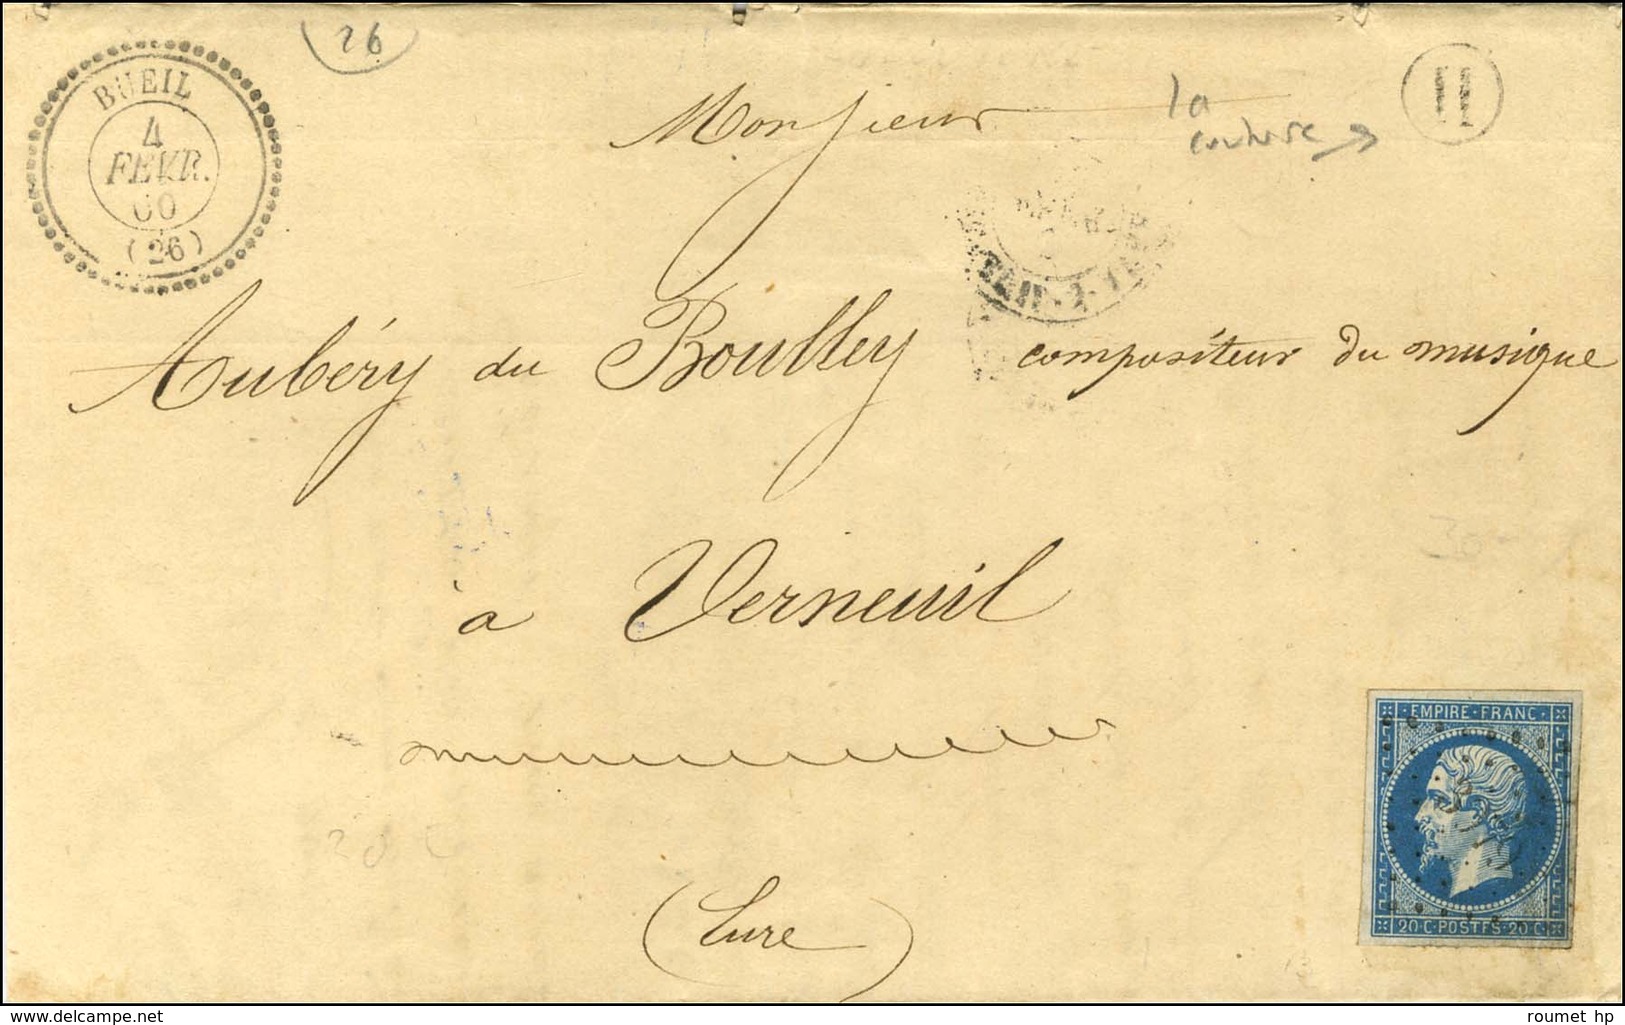 26
BUEIL
4
FEVR.
60
(26)
Monsieur
la
H
Aubéry du Boulley compositeur du musique
à Verneuil
(Eure)
20 c
30
EMPIRE·FRANC·
20 C·POSTES·20 C
www.delcampe.net
roumet hp